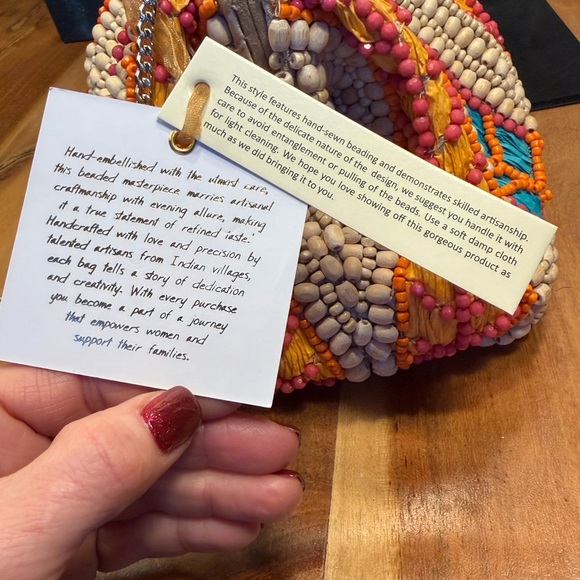 Hand-embellished with the utmost care,
this beaded masterpiece marries artisanal
craftmanship with evening allure, making
it a true statement of refined taste.'
Handcrafted with love and precision by
talented artisans from Indian villages,
each bag tells a story of dedication
and creativity. With every purchase
you become a part of a journey
that empowers women and
support their families.
This style features hand-sewn beading and demonstrates skilled artisanship.
Because of the delicate nature of the design, we suggest you handle it with
care to avoid entanglement or pulling of the beads. Use a soft damp cloth
for light cleaning. We hope you love showing off this gorgeous product as
much as we did bringing it to you.